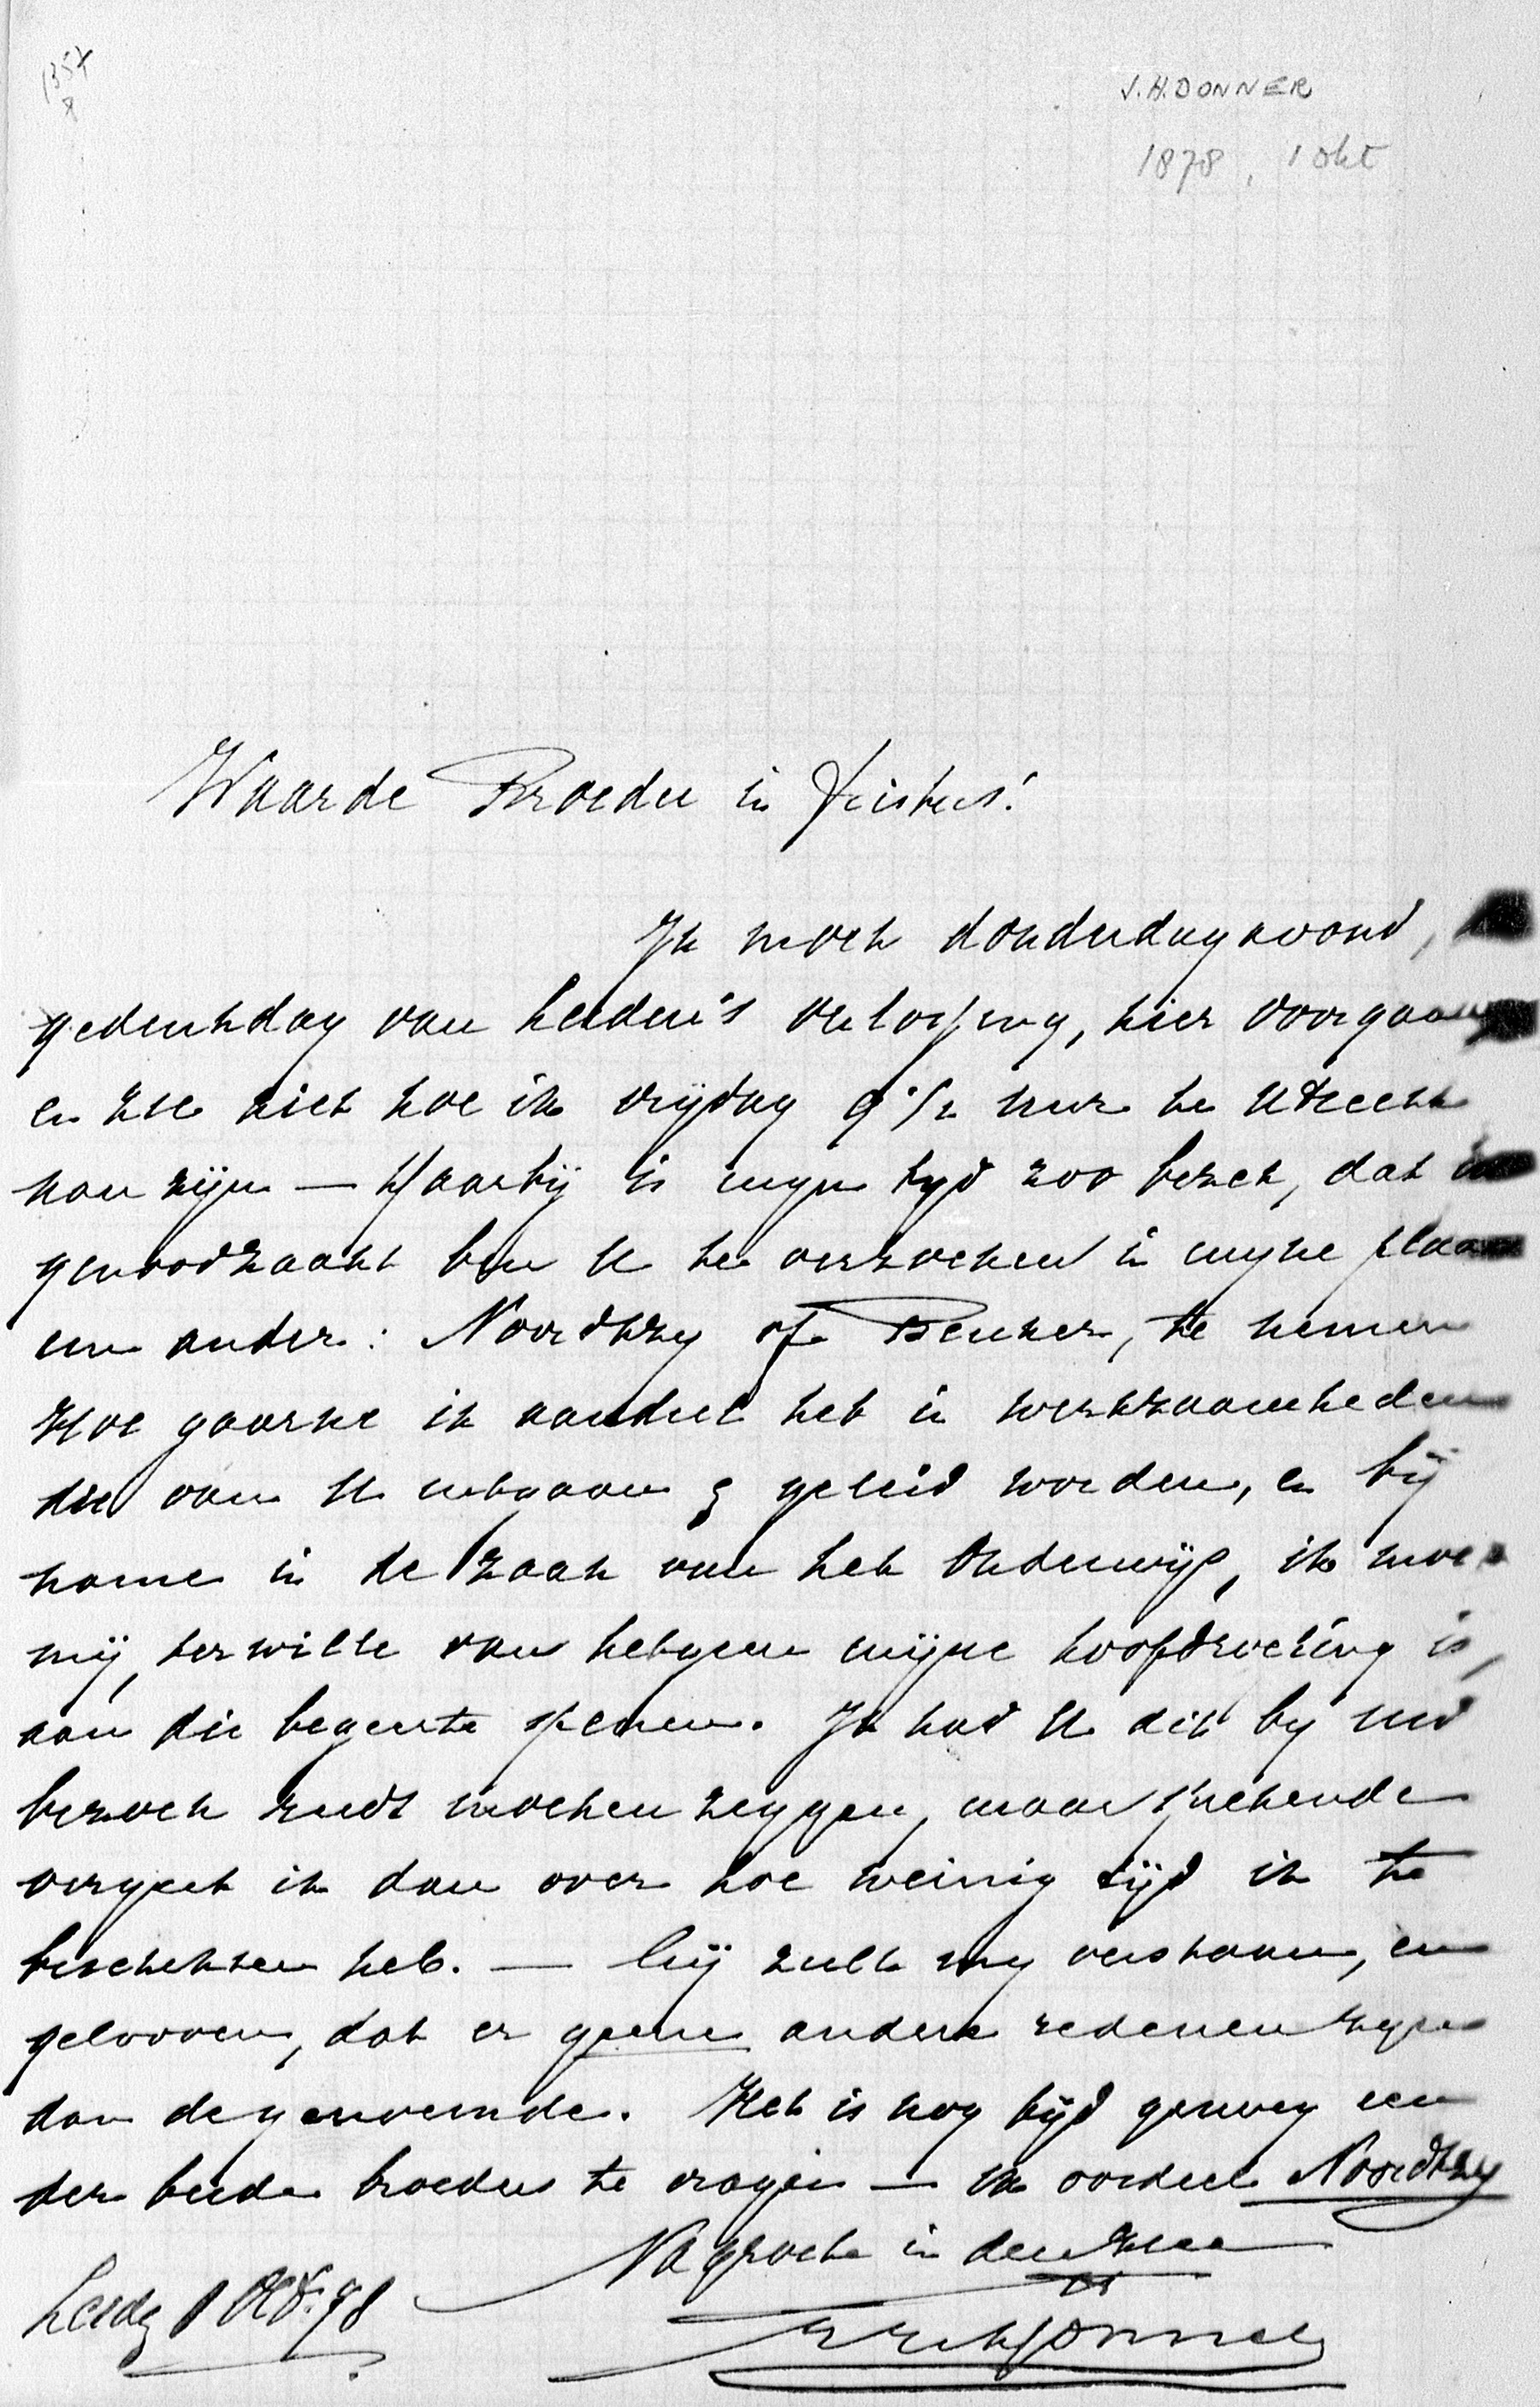 J.H. DONNER
1878, 1 okt
Waarde Broeder in Christus!
Ik moet donderdag avond,
gedenkdag van Leiden's verlossing, hier voorgaan
en zie niet hoe ik vrijdag 9 1/2 uur te Utrecht
kan zijn — Hierbij is mijn tijd zoo bezet, dat ik
genoodzaakt ben U te verzoeken in mijne plaats
een ander: Noordtzy of Beuker, te nemen
Hoe gaarne ik aandeel heb in werkzaamheden
die van U uitgaan & geleid worden, en bij
name in de zaak van het Onderwijs, ik moet
mij, terwille van hetgeen mijne hoofdroeping is,
aan die begeerte spenen. Ik had U dit bij uw
bezoek reeds moeten zeggen, maar sprekende
vergeet ik dan over hoe weinig tijd ik te
beschikken heb. — Gij zult my verstaan, en
gelooven, dat er geene andere redenen zijn
dan de genoemde. Het is nog tijd genoeg een
der beide broeders te vragen — ik oordeel Noordtzy
Na groete in den Heer
Leiden 1 Oct. 78
JH Donner